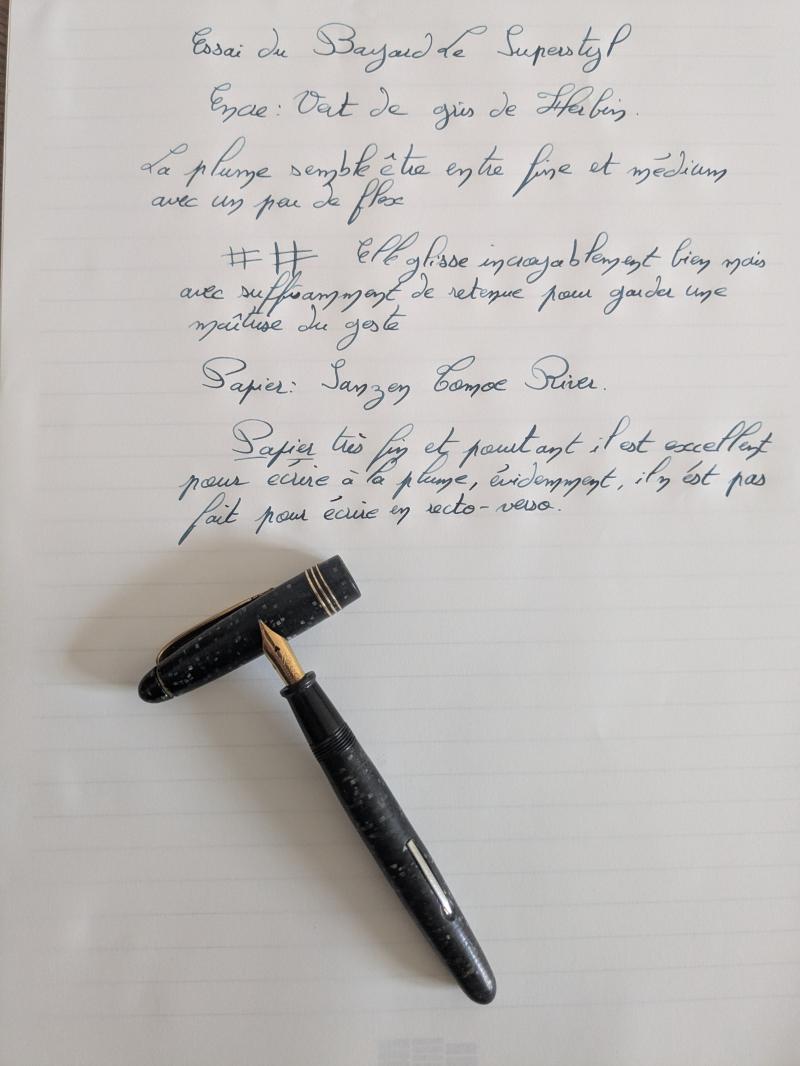 Essai du Bayard Le Superstyl
Encre : Vert de gris de Herbin.
La plume semble être entre fine et médium
avec un peu de flex
Elle glisse incroyablement bien mais
avec suffisamment de retenue pour garder une
maîtrise du geste
Papier : Sanzen Tomoe River.
Papier très fin et pourtant il est excellent
pour écrire à la plume, évidemment, il n'est pas
fait pour écrire en recto-verso.